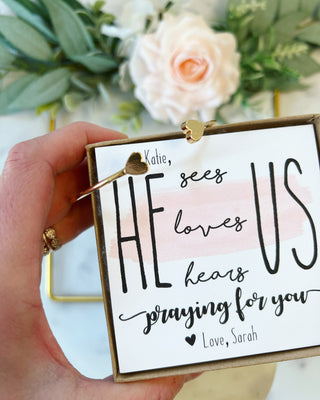 Katie,
HE sees US
loves
hears
praying for you
♥ Love, Sarah